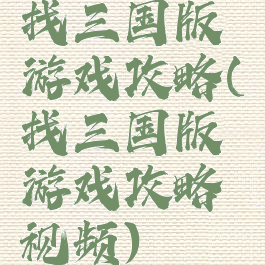 找三国版
游戏攻略(
找三国版
游戏攻略
视频)